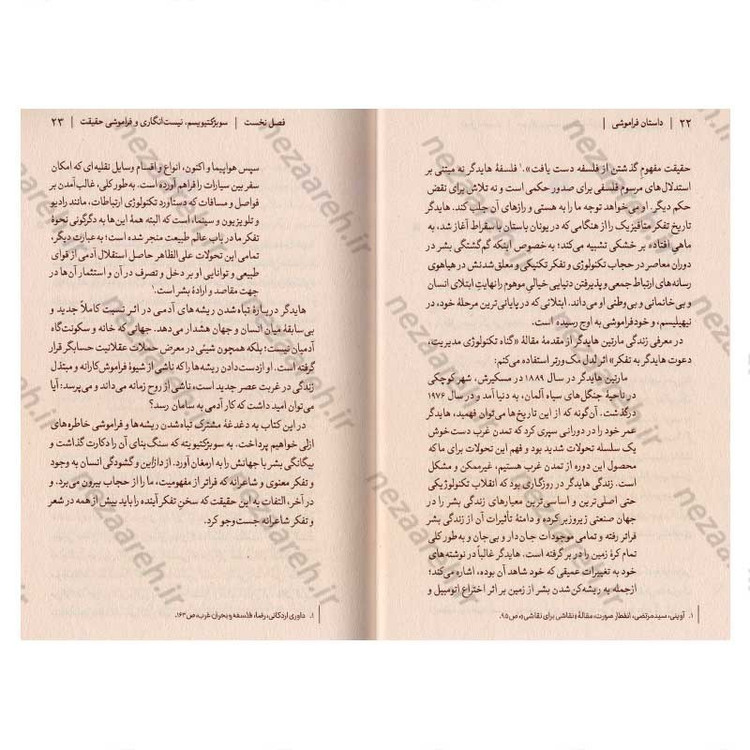 ۲۲ | داستان فراموشی |
حقیقت مفهومِ گذشتن از فلسفه دست یافت».۱ فلسفهٔ هایدگر نه مبتنی بر
استدلال‌های مرسوم فلسفی برای صدور حکمی است و نه تلاش برای نقض
حکم دیگر. او می‌خواهد توجه ما را به هستی و رازهای آن جلب کند. هایدگر
تاریخ تفکر متافیزیک را از هنگامی که در یونان باستان با سقراط آغاز شد، به
ماهیِ افتاده بر خشکی تشبیه می‌کند؛ به خصوص اینکه گم‌گشتگی بشر در
دوران معاصر در حجاب تکنولوژی و تفکر تکنیکی و معلق شدنش در هیاهوی
رسانه‌های ارتباط جمعی و پذیرفتن دنیایی خیالیِ موهوم را نهایتِ ابتلای انسان
و بی‌خانمانی و بی‌وطنی او می‌داند. ابتلائی که در پایانی‌ترین مرحلهٔ خود، در
نیهیلیسم، و خودفراموشی به اوج رسیده است.
در معرفی زندگی مارتین هایدگر از مقدمهٔ مقالهٔ «گناه تکنولوژی مدیریت،
دعوت هایدگر به تفکر» اثر لدل مک‌ورتر استفاده می‌کنم:
مارتین هایدگر در سال ۱۸۸۹ در مسکیرش، شهر کوچکی
در ناحیهٔ جنگل‌های سیاه آلمان، به دنیا آمد و در سال ۱۹۷۶
درگذشت. آن‌گونه که از این تاریخ‌ها می‌توان فهمید، هایدگر
عمر خود را در دورانی سپری کرد که تمدن غرب دست‌خوش
یک سلسله تحولات شدید بود و فهم این تحولات برای ما که
محصول این دوره از تمدن غرب هستیم، غیرممکن و مشکل
است. زندگی هایدگر در روزگاری بود که انقلاب تکنولوژیکی
حتی اصلی‌ترین و اساسی‌ترین معیارهای زندگی بشر را در
جهان صنعتی زیروزبر کرده و دامنهٔ تأثیرات آن از زندگی بشر
فراتر رفته و تمامی موجودات جان‌دار و بی‌جان و به‌طور کلی
تمام کرهٔ زمین را در بر گرفته است. هایدگر غالباً در نوشته‌های
خود به تغییرات عمیقی که خود شاهد آن بوده، اشاره می‌کند؛
ازجمله به ریشه‌کن شدن بشر از زمین بر اثر اختراع اتومبیل و
۱. آوینی، سیدمرتضی، انفطار صورت، مقالهٔ «نقاشی برای نقاشی»، ص۹۵.
فصل نخست | سوبژکتیویسم، نیست‌انگاری و فراموشی حقیقت | ۲۳
سپس هواپیما و اکنون، انواع و اقسام وسایل نقلیه‌ای که امکان
سفر بین سیارات را فراهم آورده است. به‌طور کلی، غالب‌آمدن بر
فواصل و مسافات که دستاورد تکنولوژی ارتباطات، مانند رادیو
و تلویزیون و سینما، است که البته همهٔ این‌ها به دگرگونی نحوهٔ
تفکر ما در باب عالم طبیعت منجر شده است؛ به عبارت دیگر،
تمامی این تحولات علی‌الظاهر حاصل استقلال آدمی از قوای
طبیعی و توانایی او بر دخل و تصرف در آن و استثمار آن‌ها در
جهت مقاصد و ارادهٔ بشر است.۱
هایدگر دربارهٔ تباه‌شدن ریشه‌های آدمی در اثر نسبت کاملاً جدید و
بی‌سابقهٔ میان انسان و جهان هشدار می‌دهد. جهانی که خانه و سکونت‌گاه
آدمیان نیست؛ بلکه همچون شیئی در معرض حملات عقلانیت حسابگر قرار
گرفته است. او ازدست‌دادن ریشه‌ها را که ناشی از شیوهٔ فراموش‌کارانه و مبتذل
زندگی در غربت عصر جدید است، ناشی از روح زمانه می‌داند و می‌پرسد: آیا
می‌توان امید داشت که کار آدمی به سامان رسد؟
در این کتاب به دغدغهٔ مشترک تباه‌شدن ریشه‌ها و فراموشی خاطره‌های
ازلی خواهیم پرداخت. به سوبژکتیویته که سنگ‌بنای آن را دکارت گذاشت و
بیگانگی بشر با جهانش را به ارمغان آورد. از دازاین و گشودگی انسان به وجود
و تفکر معنوی و شاعرانه که فراتر از مفهومیت، ما را از حجاب بیرون می‌برد. و
در آخر، التفات به این حقیقت که سخنِ تفکر آینده را باید بیش از همه در شعر
و تفکر شاعرانه جست‌وجو کرد.
۱. داوری اردکانی، رضا، فلسفه و بحران غرب، ص۱۶۳.
nezaareh.ir